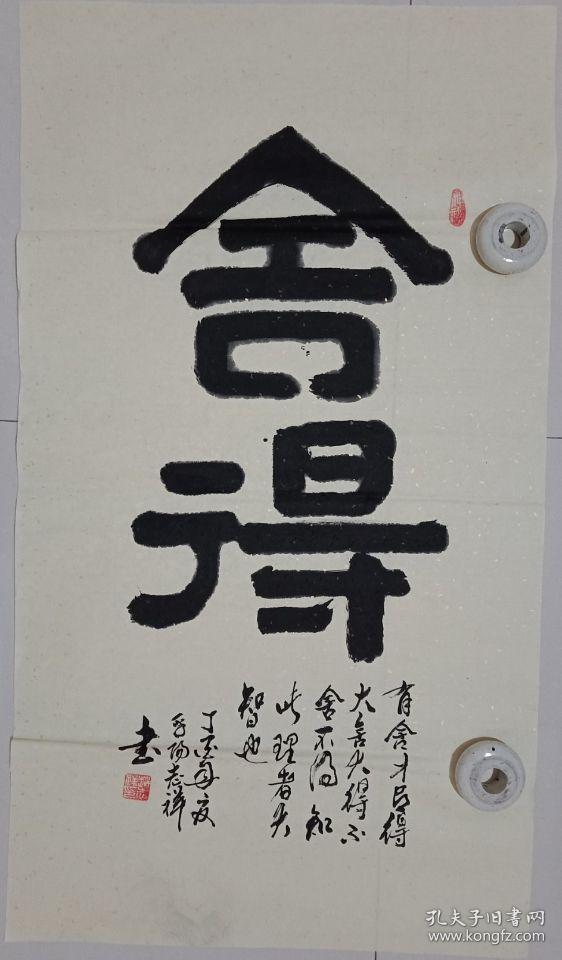 舍得
有舍才有得
大舍大得不
舍不得 知
此理者大
智也
丁酉年夏
志祥
书
孔夫子旧书网
www.kongfz.com